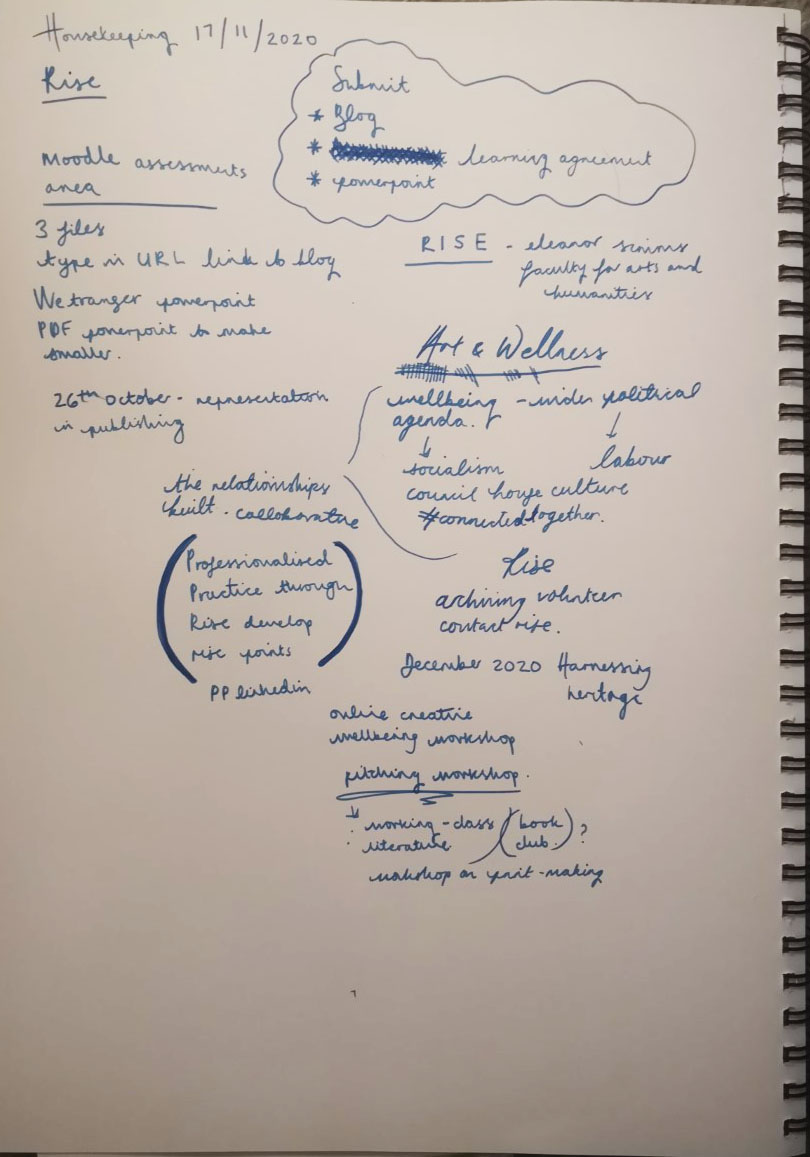 Housekeeping 17/11/2020
Rise
Submit
* Blog
* learning agreement
* powerpoint
Moodle assessments
area
3 files
type in URL link to blog
We tranger powerpoint
PDF powerpoint to make
smaller.
26th October - representation
in publishing
RISE - eleanor
faculty for arts and
humanities
Art & Wellness
wellbeing - under political
agenda.
↓
↓
socialism
labour
council house culture
#connectedtogether.
the relationships
built - collaborative
(Professionalised
Practice through
Rise develop
rise points)
PP linkedin
Rise
archiving volunteer
contact rise.
December 2020 Harnessing
heritage
online creative
wellbeing workshop
pitching workshop.
↓
: working-class (book
literature club.) ?
workshop on print-making